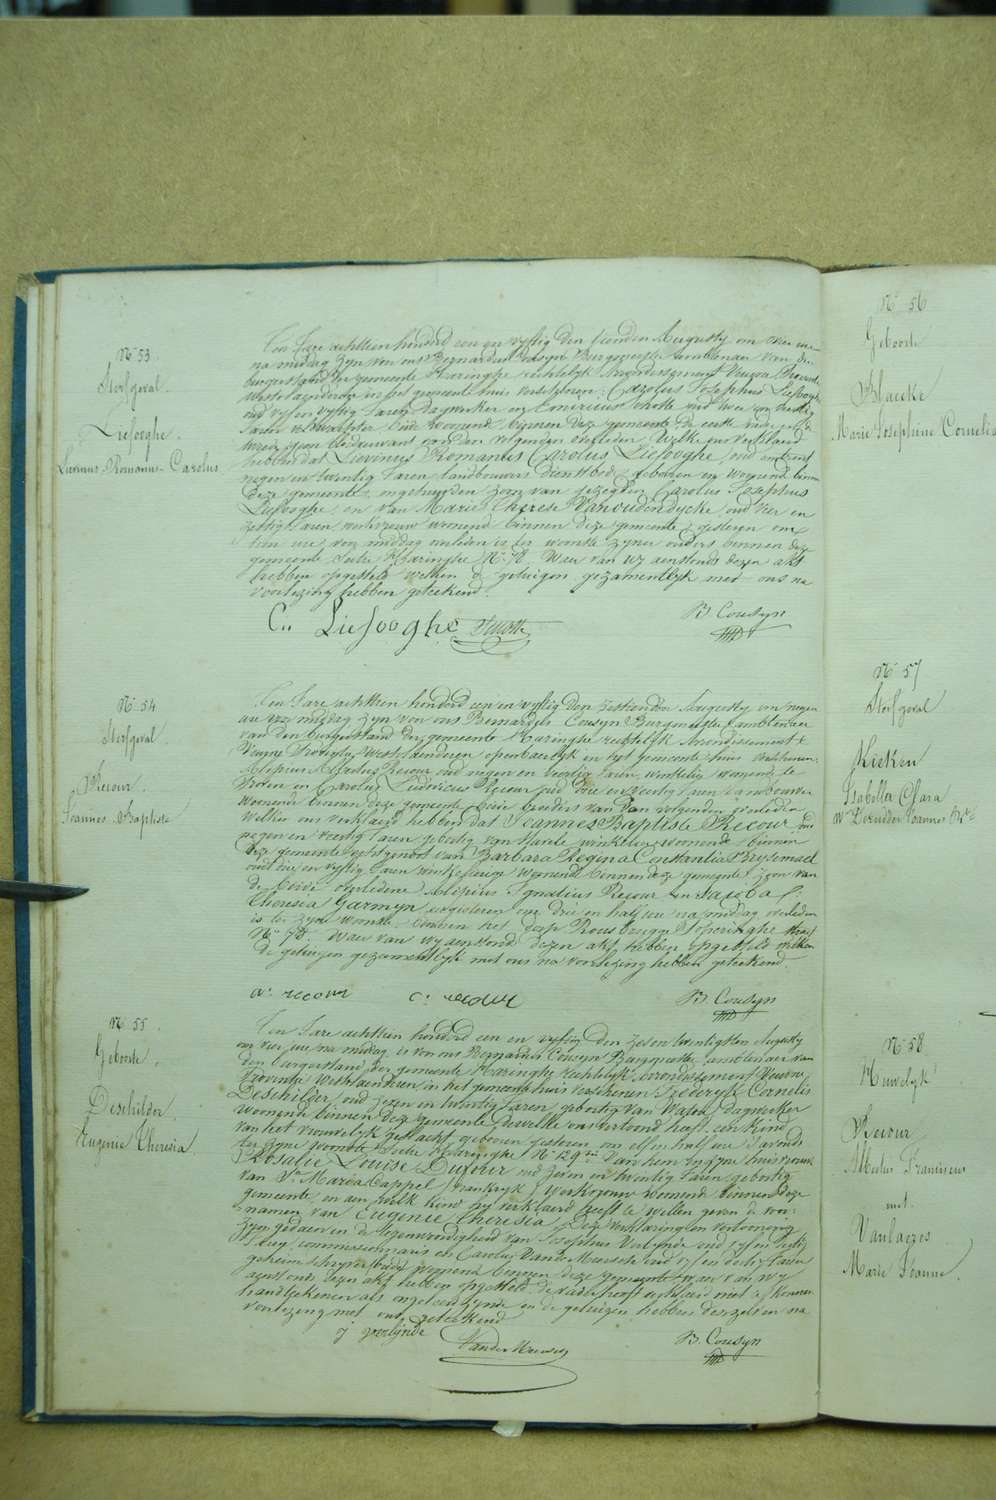 N° 53
Sterfgeval.
Liefooghe.
Livinus Romanus Carolus
Ten Jare achttien honderd een en vyftig den tienden Augusty om vier ure
na middag zyn voor ons Bernardus Cousyn Burgmeester ambtenaer van den
burgerstand der gemeente Haringhe rechtelyk Arrondissement Veurne Provintie
Westvlaenderen in het gemeente huis verschenen: Carolus Josephus Liefooghe
oud vyf en vyftig Jaren dagwerker en
Jaren veldwachter beide woonend binnen deze gemeente de eerste vader
van den volgenden overleden, Welke ons verklaerd
hebben dat Livinus Romanus Carolus Liefooghe, oud een en
negen en twintig Jaren landbouwers dienstbode geboren en woonend binnen
deze gemeente ongetrouwden zoon van gezegden Carolus Josephus
Liefooghe, en van Marie Therese Vanoudendycke oud vier en
zestig Jaren, werkvrouw woonend binnen deze gemeente; gisteren om
tien ure voor middag overleden is ter woonste zyner ouders binnen deze
gemeente Sectie Haringhe N° Waer van wy aenstonds dezen akt
hebben opgesteld welken de getuigen gezamentlyk met ons na
voorlezing hebben geteekend.
C.. Liefooghe
B. Cousyn
N° 54
Sterfgeval.
Recour.
Joannes Baptiste
Ten Jare achttien honderd een en vyftig den zestienden Augusty om negen
ure voor middag zyn voor ons Bernardus Cousyn Burgmeester ambtenaer
van den burgerstand der gemeente Haringhe rechtelyk Arrondissement
Veurne Provintie Westvlaenderen openbaerlyk en het gemeente huis verschenen:
Recour oud negen en veertig Jaren, winkelier woonende te
en Carolus Ludovicus Recour oud drie en veertig Jaren landbouwer
woonende binnen deze gemeente beide broeders van den volgenden overleden
Welken ons verklaerd hebben dat Joannes Baptiste Recour, oud
negen en veertig Jaren geboortig van winkelier woonende binnen
deze gemeente echtgenoot van Barbara Regina Constantia Bryseinael
oud drie en vyftig Jaren winkelierige woonende binnen deze gemeente; zoon van
de beide overledene Ignatius Recour en Jacoba
Theresia Garmyn, eergisteren om drie en half ure na middag overleden
is ter zyner woonste binnen het dorp Rousbrugge
N° 78. Waer van wy aenstond dezen akt hebben opgesteld welken
de getuigen gezamentlyk met ons na voorlezing hebben geteekend.
a: recour c: recour
B. Cousyn
N° 55
Geboorte.
Deschilder
Eugenie Theresia
Ten Jare achttien honderd een en vyftig den zeven twintigsten Augusty
om vier ure na middag is voor ons Bernardus Cousyn Burgmeester ambtenaer van
den burgerstand der gemeente Haringhe rechtelyk Arrondissement Veurne,
Provintie Westvlaenderen in het gemeente huis verschenen Frederyk Cornelis
Deschilder, oud zeven en twintig Jaren, geboortig van Waton, dagwerker
woonende binnen deze gemeente dewelke ons vertoond heeft een kind
van het vrouwelyk geslacht, geboren gisteren om elf en half ure 's avonds
ter zyne woonste Sectie Haringhe N° 129 van hem en zyne huisvrouw
Rosalie Louise Dufour oud zeven en twintig Jaren, geboortig
van Ste Maria Cappel (Frankryk) Werkvrouw woonend binnen deze
gemeente en aen welk kind hy verklaerd heeft te willen geven de voor-
namen van Eugenie Theresia. Deze verklaring en vertooning
zyn gedaen in de tegenwoordigheid van Josephus Verlynde oud vyf en dertig
Jaer commissionnaris en Carolus oud vyf en dertig Jaren
geheim schryver beide woonend binnen deze gemeente Waer van wy
aenstonds dezen akt hebben opgesteld, de vader heeft verklaerd niet te kunnen
handteekenen als ongeleerd zynde en de getuigen hebben dezelven na
voorlezing met ons geteekend
j verlynde
B. Cousyn
N° 56
Geboorte
Blaecke
Marie Josephine Cornelia
N° 57
Sterfgeval
Kieken
Isabella Clara
N° 58
Huwelyk
Recour
Albertus Franciscus
met
Vanlaeges
Marie Jeanne.